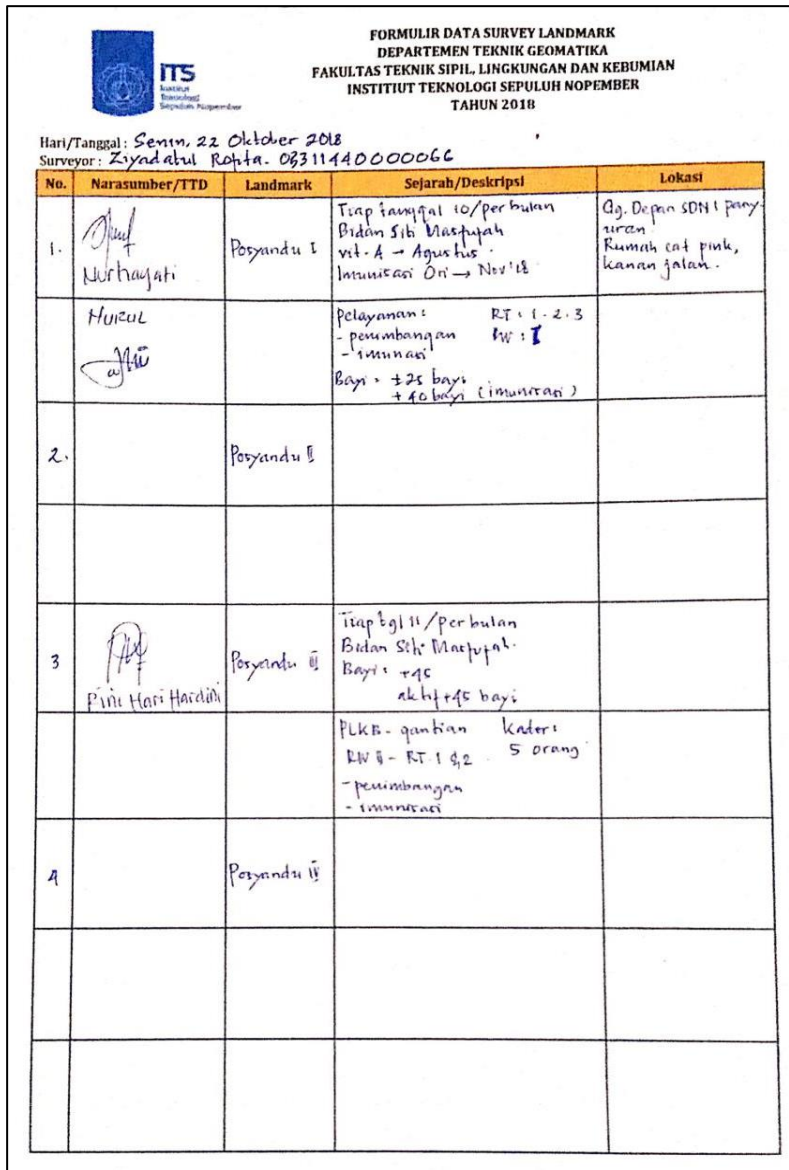 ITS
Institut
Teknologi
Sepuluh Nopember
FORMULIR DATA SURVEY LANDMARK
DEPARTEMEN TEKNIK GEOMATIKA
FAKULTAS TEKNIK SIPIL, LINGKUNGAN DAN KEBUMIAN
INSTITIUT TEKNOLOGI SEPULUH NOPEMBER
TAHUN 2018
Hari/Tanggal : Senin, 22 Oktober 2018
Surveyor : Ziyadatul Rofita. 03311440000066
No. Narasumber/TTD Landmark Sejarah/Deskripsi Lokasi
1.
Nurhayati
Posyandu I
Tiap tanggal 10/per bulan
Bidan Siti Masfufah
vit. A → Agustus
Imunisasi Ori → Nov'18
Gg. Depan SDN 1 pany-
uran
Rumah cat pink,
kanan jalan.
Nurul
pelayanan : RT : 1 - 2 - 3
- penimbangan RW : I
- imunasi
Bayi : ±25 bayi
+40 bayi (imunisasi)
2. Posyandu II
3
Pini Hari Hardini
Posyandu III
Tiap tgl 11/per bulan
Bidan Siti Masfufah.
Bayi : +45
aktif +45 bayi
PLKB - gantian Kader :
RW II - RT. 1 & 2 5 orang
- penimbangan
- imunisasi
4 Posyandu IV